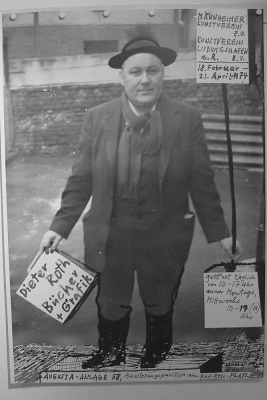 MANNHEIMER
KUNSTVEREIN
E.V.
KUNSTVEREIN
LUDWIGSHAFEN
a.R. E.V.
18. Februar —
21. April 1974
Dieter
Roth
Bücher
+
Grafik
geöffnet täglich
von 10-17 Uhr
ausser Montags,
Mittwochs
10-19
Uhr
AUGUSTA-ANLAGE 58, Ausstellungspavillon am